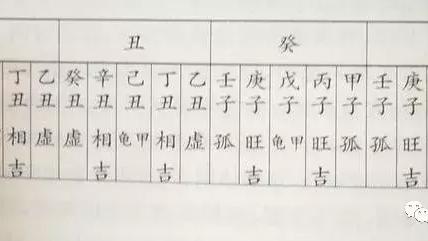 癸
丑
庚子旺吉
壬子孤
甲子孤
丙子旺吉
戊子龟甲
庚子旺吉
壬子孤
乙丑虚
丁丑相吉
己丑龟甲
辛丑相吉
癸丑虚
乙丑虚
丁丑相吉